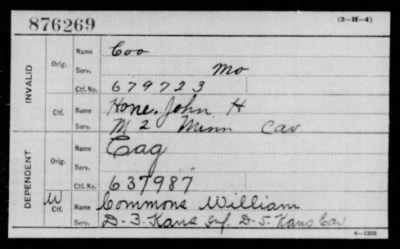 876269 (3-H-4)
INVALID
Orig.
Name Coo
Serv. Mo
Ctf. No. 679723
Ctf.
Name Hone, John H
Serv. M 2 Minn Cav
DEPENDENT
Orig.
Name Cag
Serv.
Ctf. No. 637987
W Ctf.
Name Commons William
Serv. D-3. Kans Inf. D-5. Kans Cav
6-1308